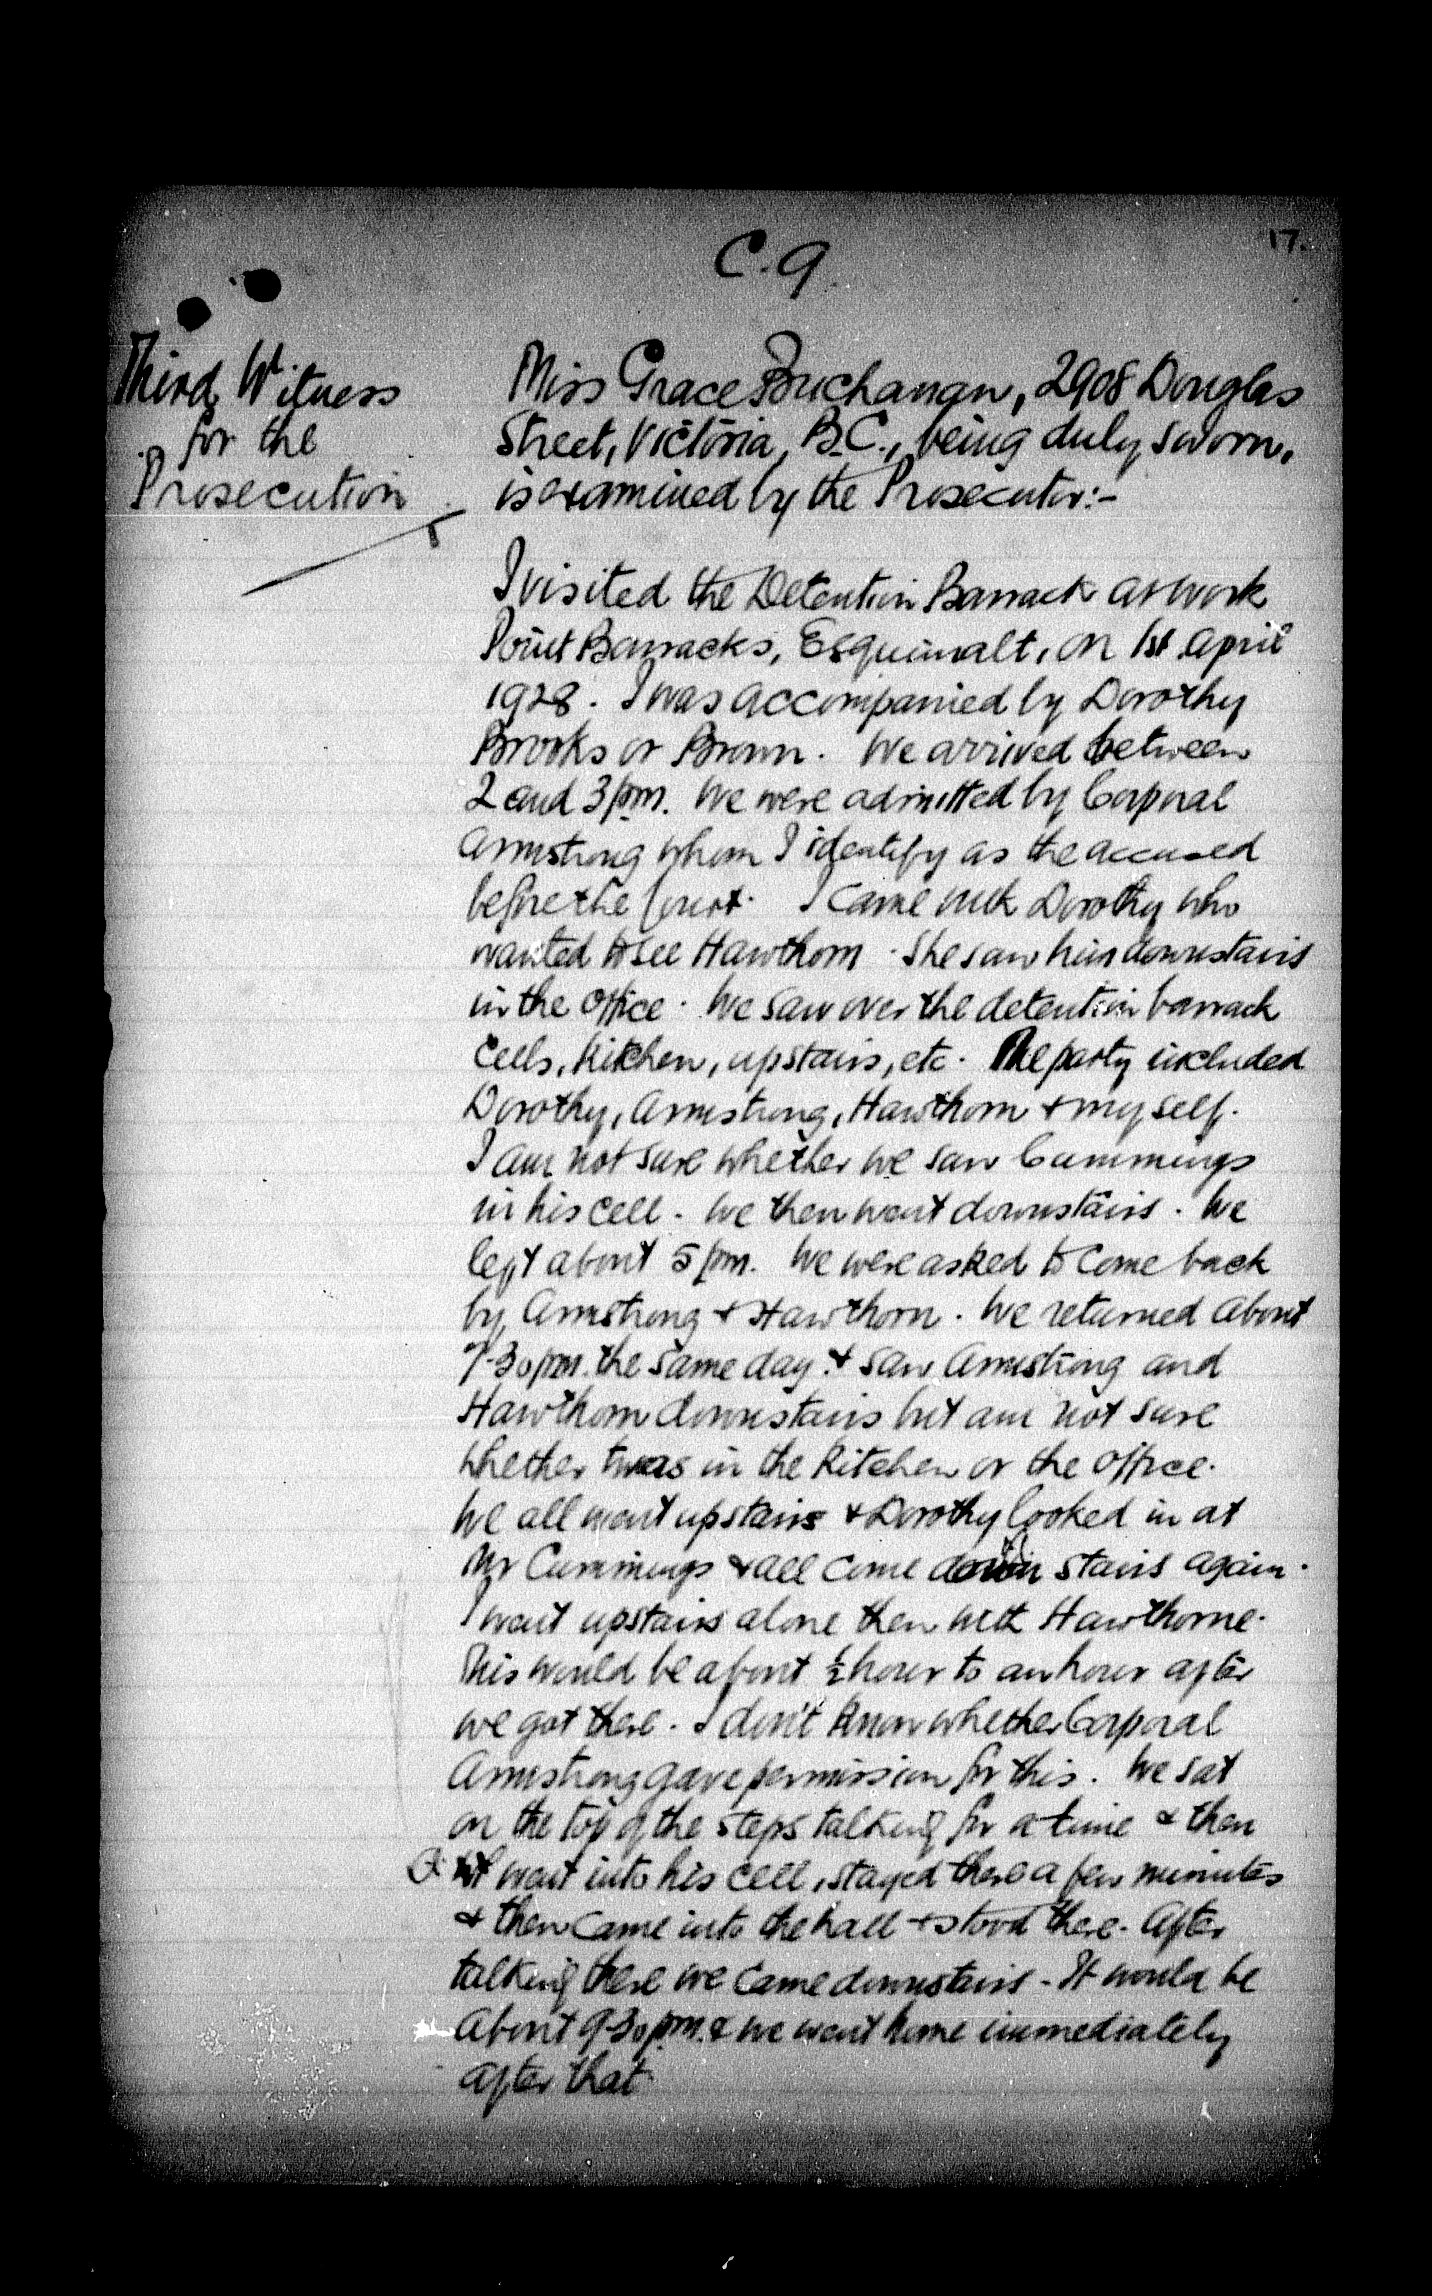 C. 9
17.
Third Witness
for the
Prosecution
Miss Grace Buchanan, 2908 Douglas
Street, Victoria, B.C., being duly sworn,
is examined by the Prosecutor:-
I visited the Detention Barrack at Work
Point Barracks, Esquimalt, on 1st April
1928. I was accompanied by Dorothy
Brooks or Brown. We arrived between
2 and 3 pm. We were admitted by Corporal
Armstrong whom I identify as the accused
before the Court. I came with Dorothy who
wanted to see Hawthorn. She saw him downstairs
in the office. We saw over the detention barrack
cells, kitchen, upstairs, etc. The party included
Dorothy, Armstrong, Hawthorn & myself.
I am not sure whether we saw Cummings
in his cell. We then went downstairs. We
left about 5 pm. We were asked to come back
by Armstrong & Hawthorn. We returned about
7-30 pm. the same day & saw Armstrong and
Hawthorn downstairs but am not sure
whether twas in the kitchen or the office.
We all went upstairs & Dorothy looked in at
Mr Cummings & all come down stairs again.
I went upstairs alone then with Hawthorne.
This would be about ½ hour to an hour after
we got there. I don't know whether Corporal
Armstrong gave permission for this. We sat
on the top of the steps talking for a time & then
went into his cell, stayed there a few minutes
& then came into the hall & stood there. After
talking there we came downstairs. It would be
about 9-30 pm. & we went home immediately
after that.